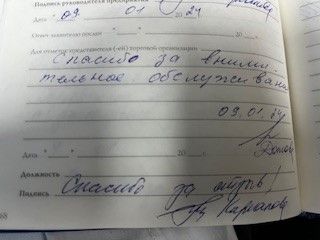 Подпись руководителя предприятия
Дата " 09 " 01 20 24
Ответ заявителю послан " " 20
Для отметок представителя (-ей) торговой организации
Спасибо за внима-
тельное обслуживан
09.01.24
Дата " " 20 г.
Должность
Спасибо за отзыв!
Подпись
88